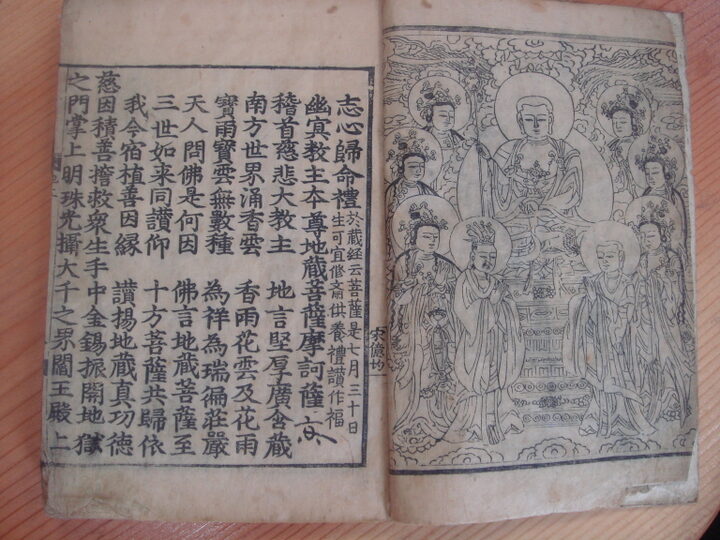 志心歸命禮
於藏經云菩薩是七月三十日
生可宜修齋供養禮讚作福
幽冥教主本尊地藏菩薩摩訶薩
稽首慈悲大教主 地言堅厚廣含藏
南方世界涌香雲 香雨花雲及花雨
寶雨寶雲無數種 為祥為瑞徧莊嚴
天人問佛是何因 佛言地藏菩薩至
三世如來同讚仰 十方菩薩共歸依
我今宿植善因緣 讚揚地藏真功德
慈因積善擔救衆生手中金錫振開地獄
之門掌上明珠光攝大千之界閻王殿上